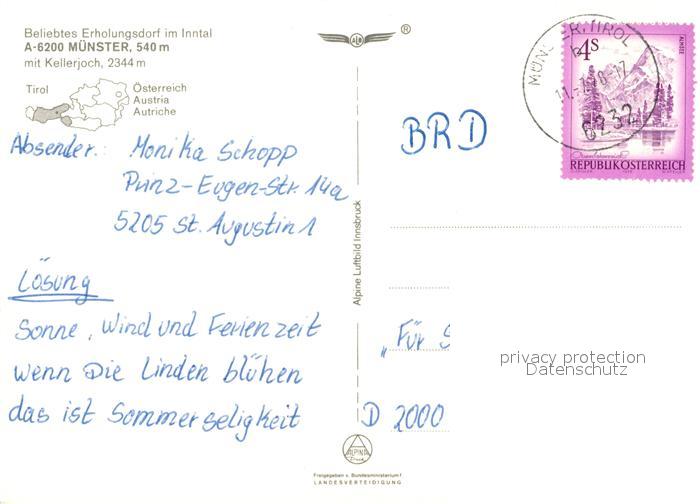 Beliebtes Erholungsdorf im Inntal
A-6200 MÜNSTER, 540 m
mit Kellerjoch, 2344 m
Tirol
Österreich
Austria
Autriche
Absender.: Monika Schopp
Prinz-Eugen-Str. 14a
5205 St. Augustin 1
Lösung
Sonne, Wind und Ferienzeit
wenn Die Linden blühen
das ist Sommerseligkeit
®
Alpine Luftbild Innsbruck
ALPINA
Freigegeben v. Bundesministerium f.
LANDESVERTEIDIGUNG
MÜNSTER, TIROL
6232
4S
ALMSEE
REPUBLIK ÖSTERREICH
BRD
„Für S
D 2000
privacy protection
Datenschutz